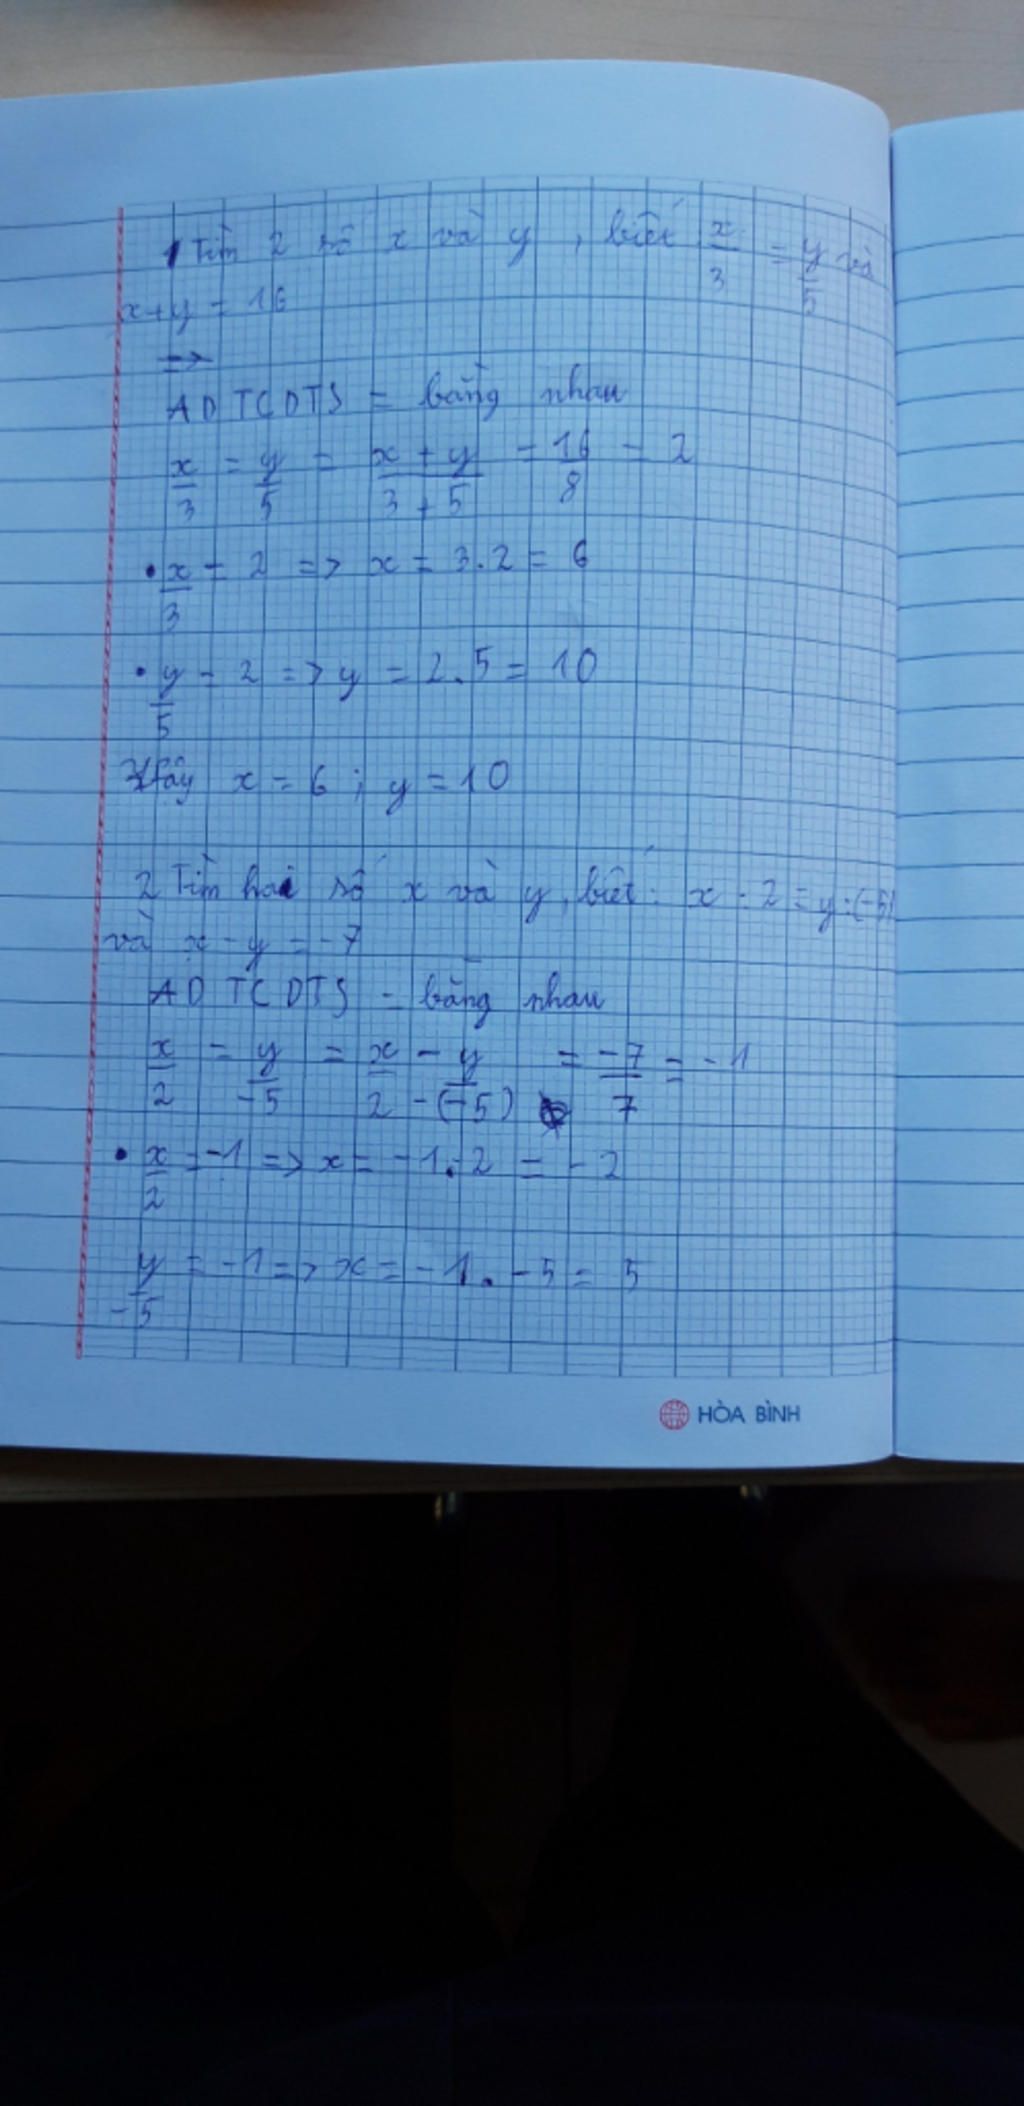 1 Tìm 2 số x và y, biết x/3 = y/5 và
x+y = 16
=>
AD TCDTS = bằng nhau
x/3 = y/5 = x + y/3 + 5 = 16/8 = 2
• x/3 = 2 => x = 3.2 = 6
• y/5 = 2 => y = 2.5 = 10
Vậy x = 6 ; y = 10
2 Tìm hai số x và y, biết: x : 2 = y : (-5)
và x - y = -7
AD TCDTS = bằng nhau
x/2 = y/-5 = x - y/2 - (-5) = -7/7 = -1
• x/2 = -1 => x = -1.2 = -2
y/-5 = -1 => x = -1. -5 = 5
HÒA BÌNH